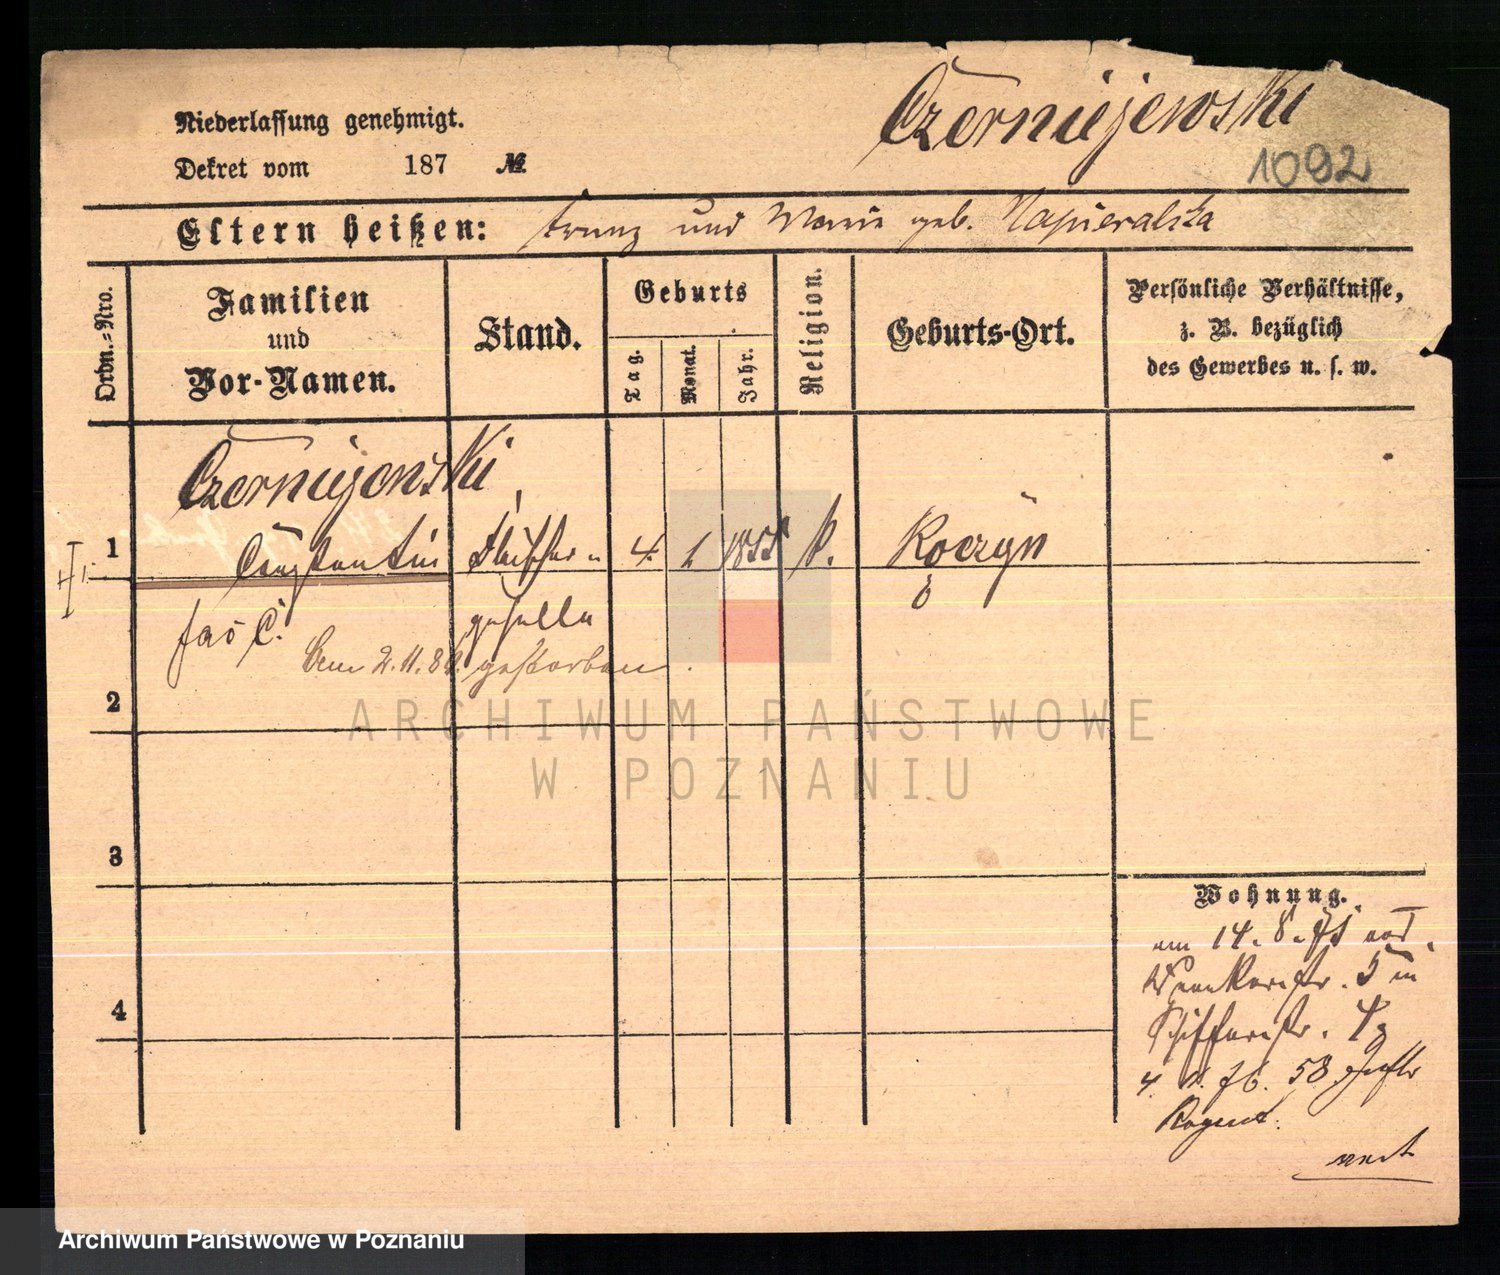 Czerniejewski
Niederlassung genehmigt.
Dekret vom 187 №
1092
Eltern heißen: Franz und Marie geb. Napieralska
Ordn.-Nro.
Familien
und
Vor-Namen.
Stand.
Geburts
Tag.
Monat.
Jahr.
Religion.
Geburts-Ort.
Persönliche Verhältnisse,
z. B. bezüglich
des Gewerbes u. s. w.
Czerniejewski,
1 Constantin Fleischer- 4. 1 1855 k. Koczyn
geselle
Am 2.11.8 gestorben.
2
3
4
Wohnung.
am 14. 8. 75 von
Wronkerstr. 5 in
Schifferstr. 4
4. 76. 58 Inftr
Regmt.
ARCHIWUM PAŃSTWOWE
W POZNANIU
Archiwum Państwowe w Poznaniu